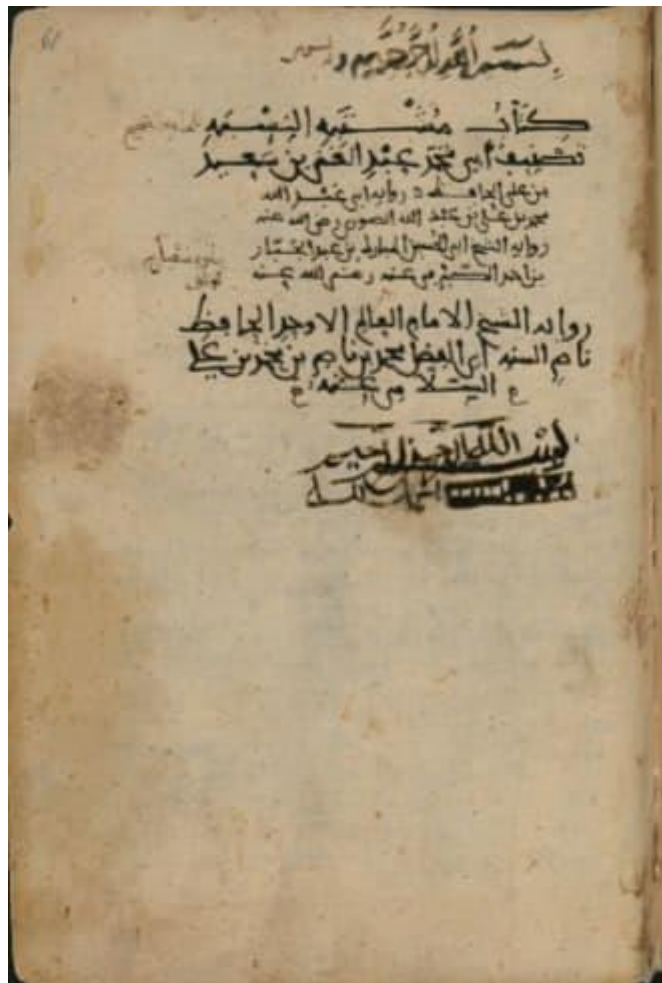 بسم الله الرحمن الرحيم
كتاب مشتبه النسبه
تصنيف أبي محمد عبد الغني بن سعيد
بن علي الحافظ رواية ابي عبد الله
محمد بن علي بن عبد الله الصوري رضي الله عنه
رواية الشيخ ابي الحسين المبارك بن عبد الجبار
بن احمد الصيرفي عنه رضي الله عنه
رواية الشيخ الامام العالم الاوحد الحافظ
ناصر السنه أبي الفضل محمد بن ناصر بن محمد بن علي
السلامي عنه
بسم الله الرحمن الرحيم